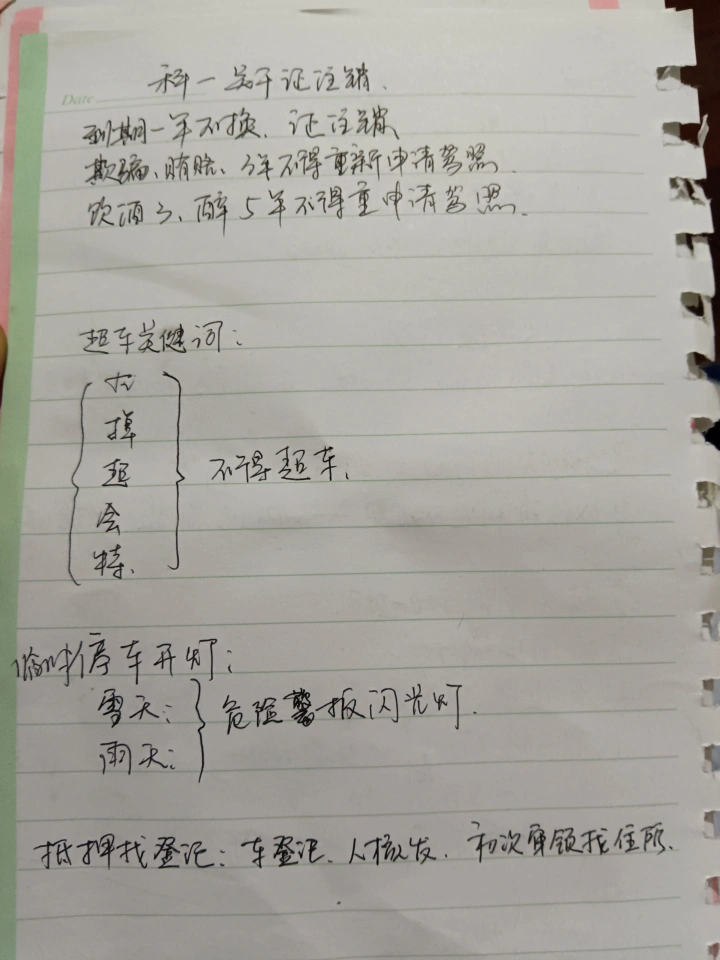 Date
科一关于证注销.
到期一年不换、证注销
欺骗、贿赂、3年不得重新申请驾照.
饮酒3、醉5年不得重申请驾照.
超车关键词:
左
掉
超
会
特.
不得超车.
临时停车开灯:
雪天:
雨天:
危险警报闪光灯.
抵押找登记: 车登记. 人核发. 初次申领找住所.